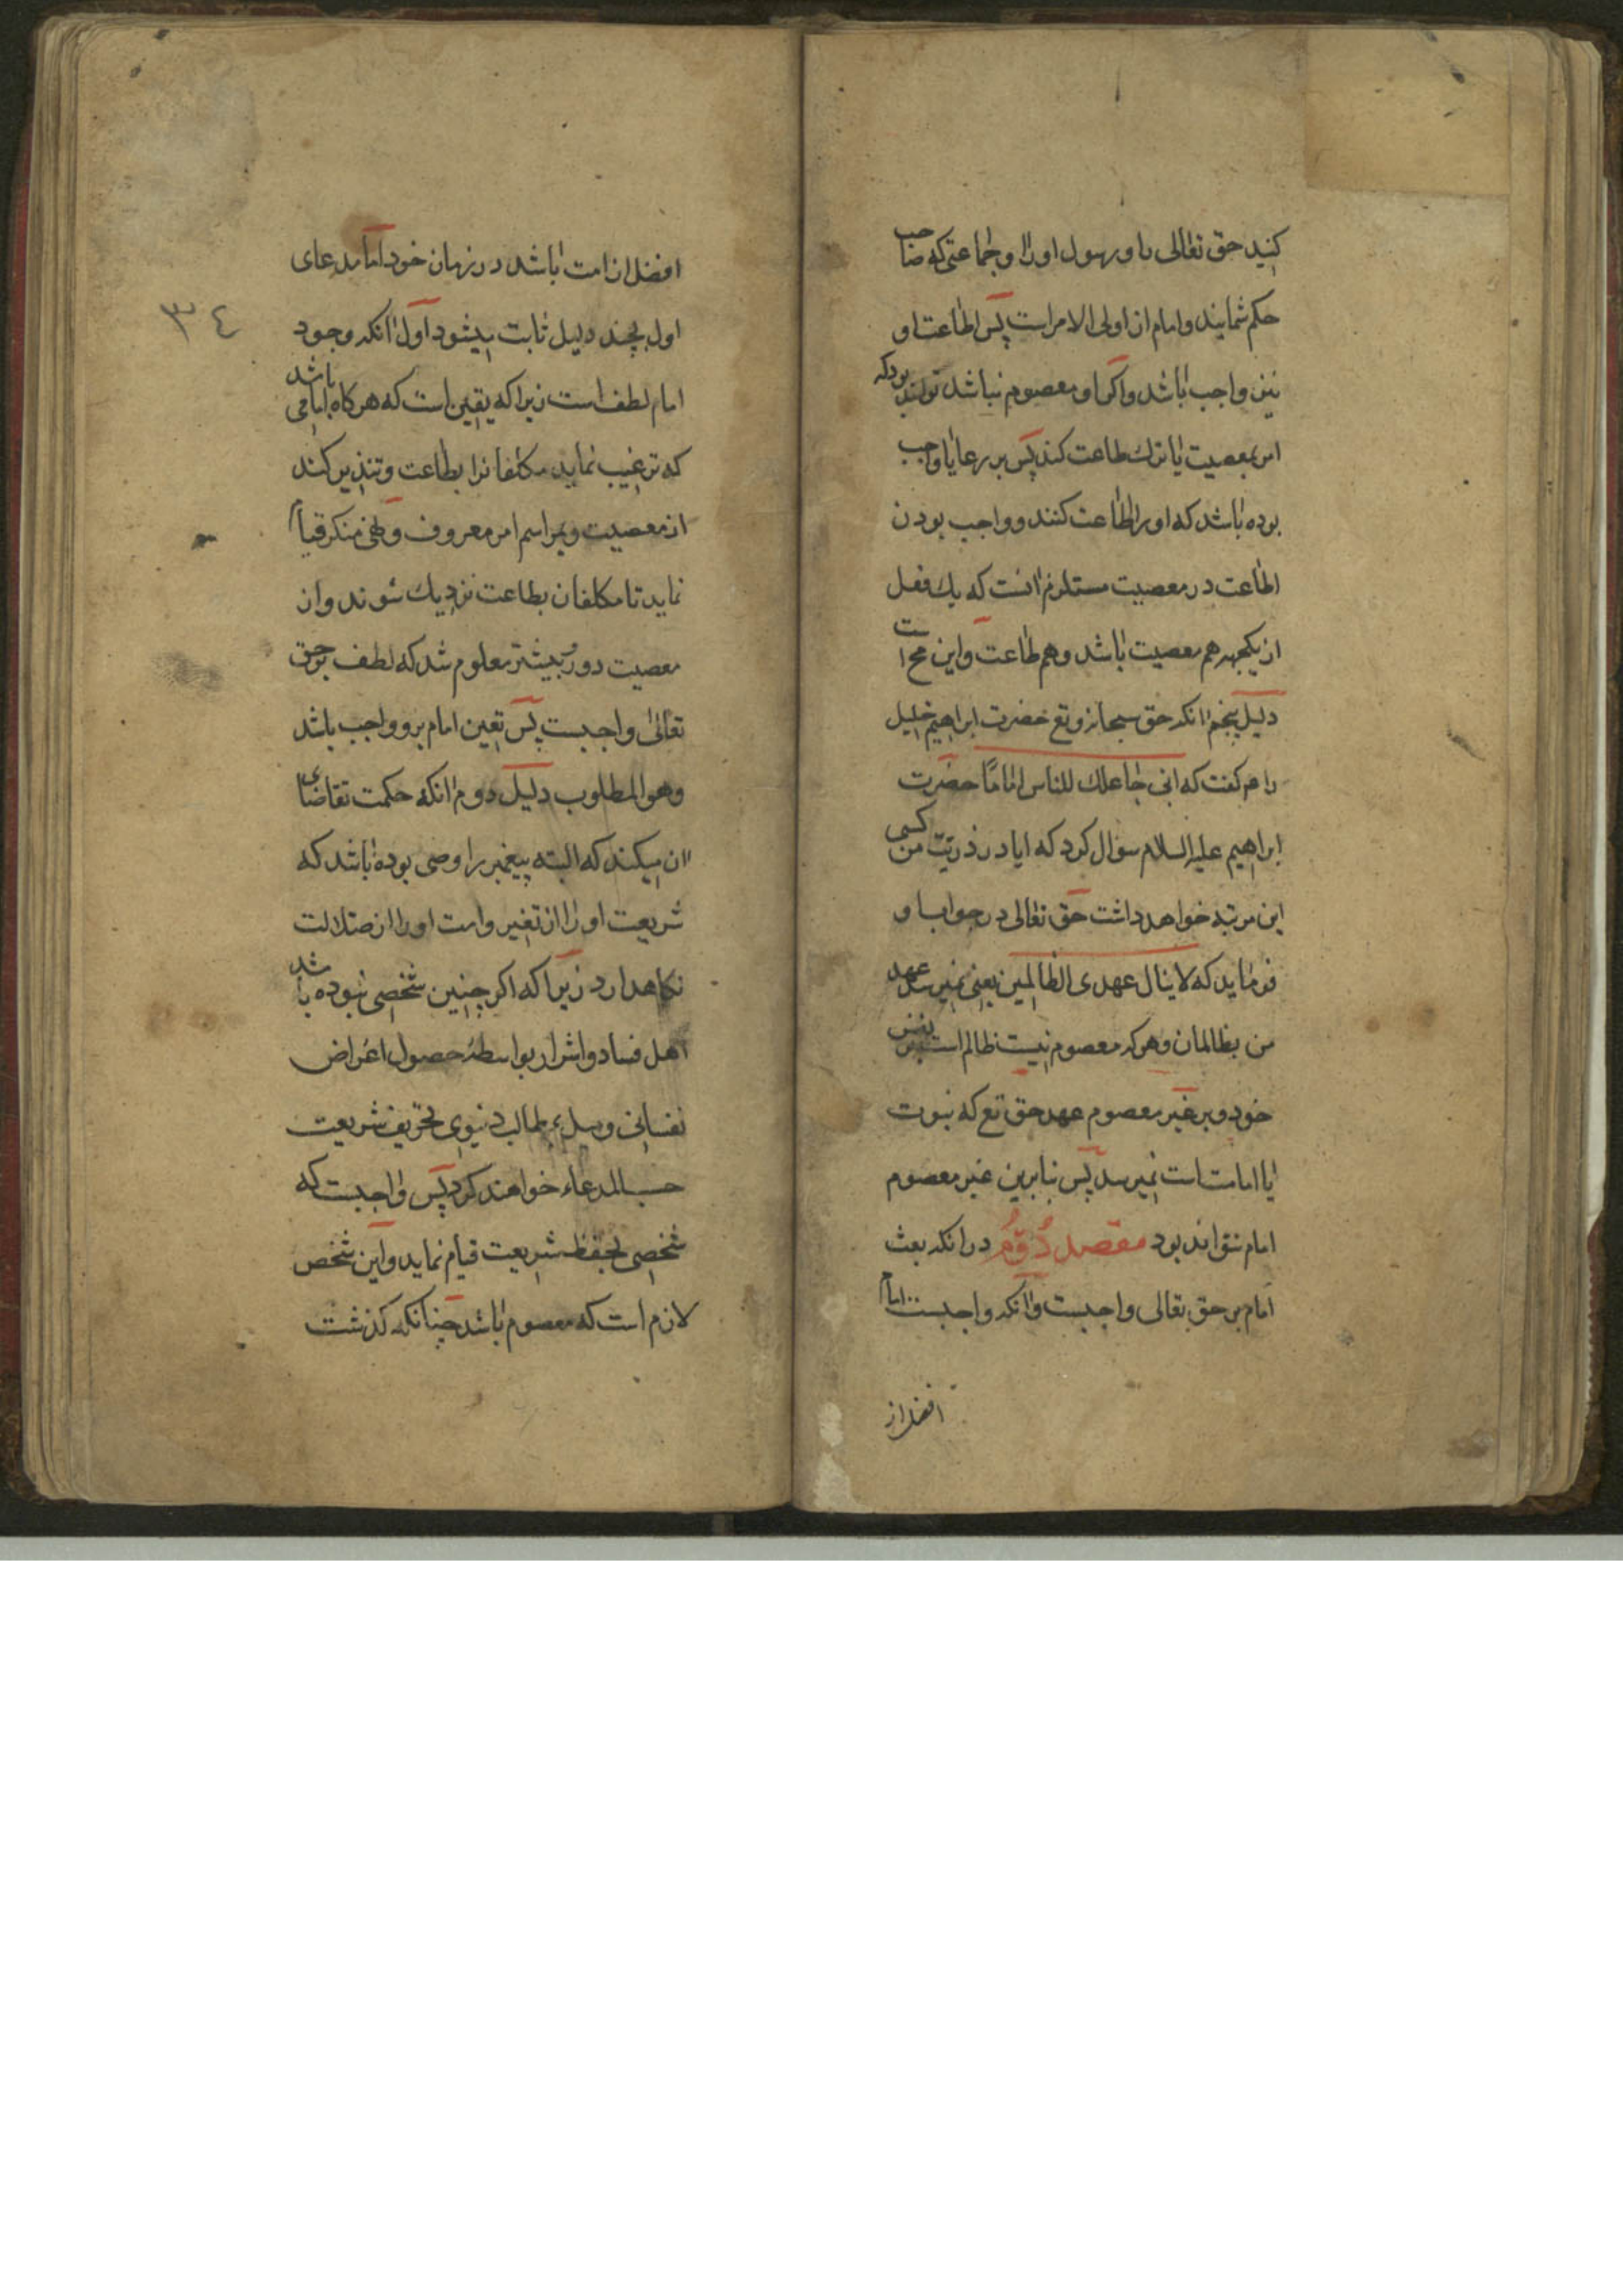 کنید حق تعالی را و رسول او را و جماعتی که صاحب
حکم شمایند و امام از اولی الامر است پس اطاعت او
نیز واجب باشد و اگر او معصوم نباشد تواند بود که
امر بمعصیت یا ترك طاعت کند پس بر رعایا واجب
بوده باشد که او را اطاعت کنند و واجب بودن
اطاعت در معصیت مستلزم انست که یك فعل
از یکجهه هم معصیت باشد و هم طاعت و این محا است
دلیل پنجم انکه حق سبحانه و تع حضرت ابراهیم خلیل
را گفت که انی جاعلك للناس اماما حضرت
ابراهیم علیه السلام سؤال کرد که ایا در ذریت من کسی
این مرتبه خواهد داشت حق تعالی در جواب او
فرماید که لا ینال عهدی الظالمین یعنی نمیرسد عهد
من بظالمان و هر که معصوم نیست ظالم است بنفس
خود و بر غیر معصوم عهد حق تع که نبوت
یا امامت است نمیرسد پس بنابرین غیر معصوم
امام نتواند بود مقصد دوم در انکه بعث
امام بر حق تعالی واجبست و انکه واجبست امام
افضل از
٣٤
افضل از امت باشد در زمان خود اما مدعای
اول بچند دلیل ثابت میشود اول انکه وجود
امام لطف است زیرا که یقین است که هر کاه امامی باشد
که ترغیب نماید مکلفانرا بطاعت و تنذیر کند
از معصیت و بمراسم امر معروف و نهی منکر قیام
نماید تا مکلفان بطاعت نزدیك شوند و از
معصیت دور و بیشتر معلوم شد که لطف بر حق
تعالی واجبست پس تعین امام برو واجب باشد
وهو المطلوب دلیل دوم انکه حکمت تقاضای
ان میکند که البته پیغمبر را وصی بوده باشد که
شریعت او را از تغیر و امت او را از ضلالت
نکاهدارد زیرا که اکر چنین شخصی نبوده باشد
اهل فساد و اشرار بواسطه حصول اغراض
نفسانی و مطالب دنیوی تحریف شریعت
حسب المدعاء خواهند کرد پس واجبست که
شخصی بحفظ شریعت قیام نماید و این شخص
لازم است که معصوم باشد چنانکه کذشت